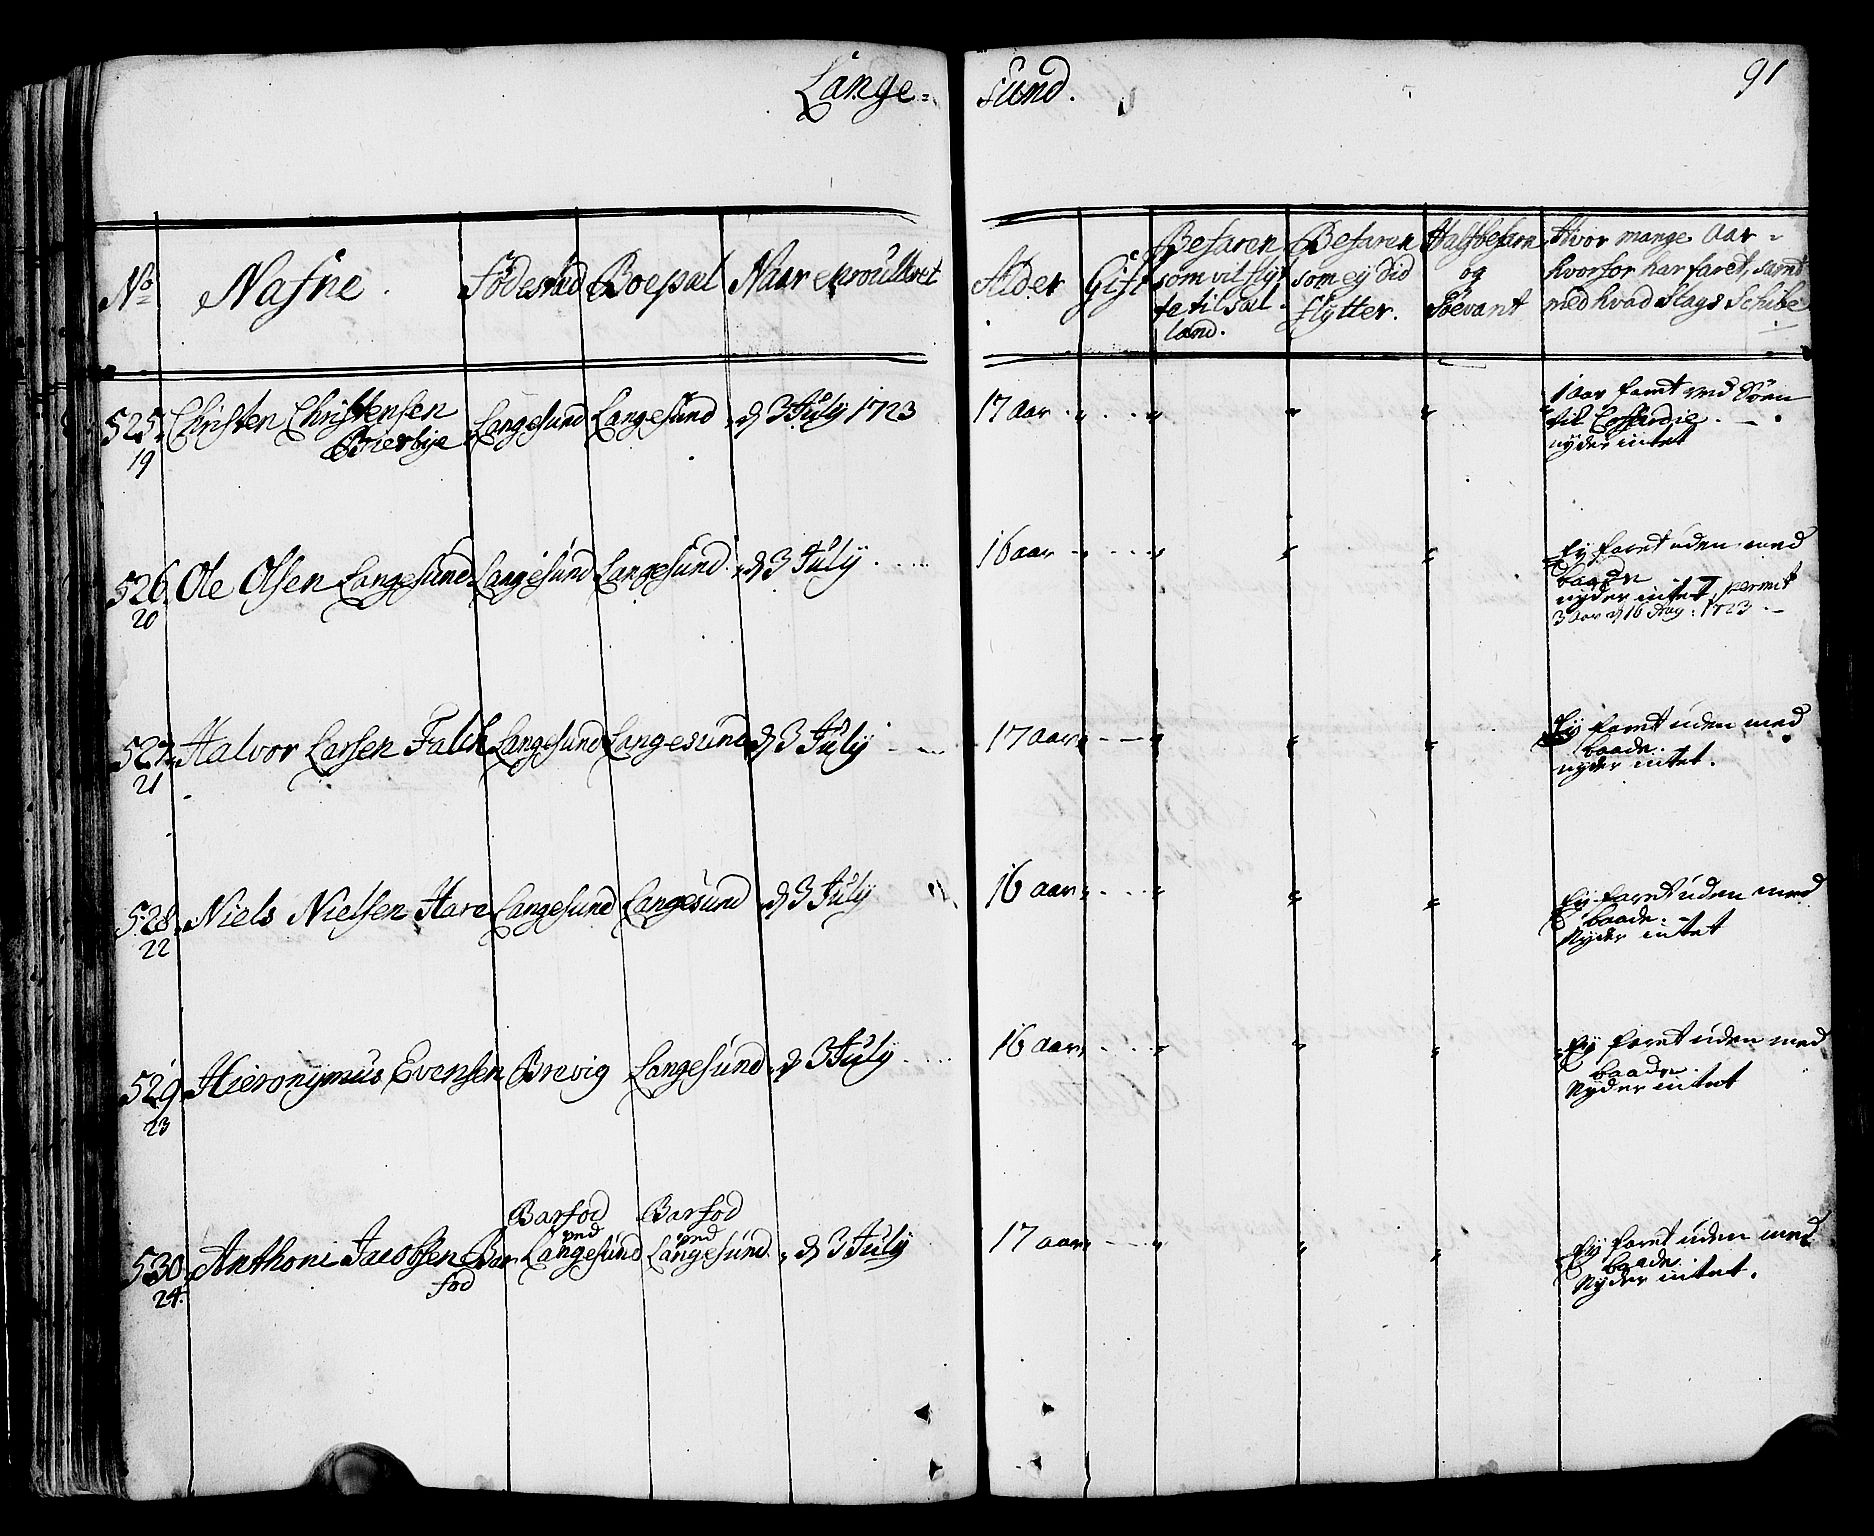 Lange-sund.
91
No
Nafne.
Födestad
Boepæl
Naar enroulleret
Alder
Gift
Befaren
som vil flyt
te til Sæl
land.
Befaren
som ey did
flytter.
Halfbefaren
og
Söevant
Hvor mange Aar
hvorfor har faret, samt
med hvad Slags Schibe
525. Christen Christensen Langesund Langesund d 3 July 1723 17 aar
19 Bierbye
1 aar faret
til
nyder intet
526. Ole Olsen Langesund Langesund Langesund d 3 July 16 aar
20
Ey faret uden med
baade
nyder intet, permit
3 aar d 16 Aug. 1723
527. Halvor Larsen Falck Langesund Langesund d 3 July 17 aar
21
Ey faret uden med
baade.
nyder intet.
528. Niels Nielsen Hare Langesund Langesund d 3 July 16 aar
22
Ey faret uden med
baade.
Nyder intet
529. Hieronymus Evensen Brevig Langesund d 3 July 16 aar
23
Ey faret uden med
baade.
Nyder intet
Barfod Barfod
ved ved
530. Anthoni Jacobsen Bar Langesund Langesund d 3 July 17 aar
24. fod
Ey faret uden med
baade.
Nyder intet.